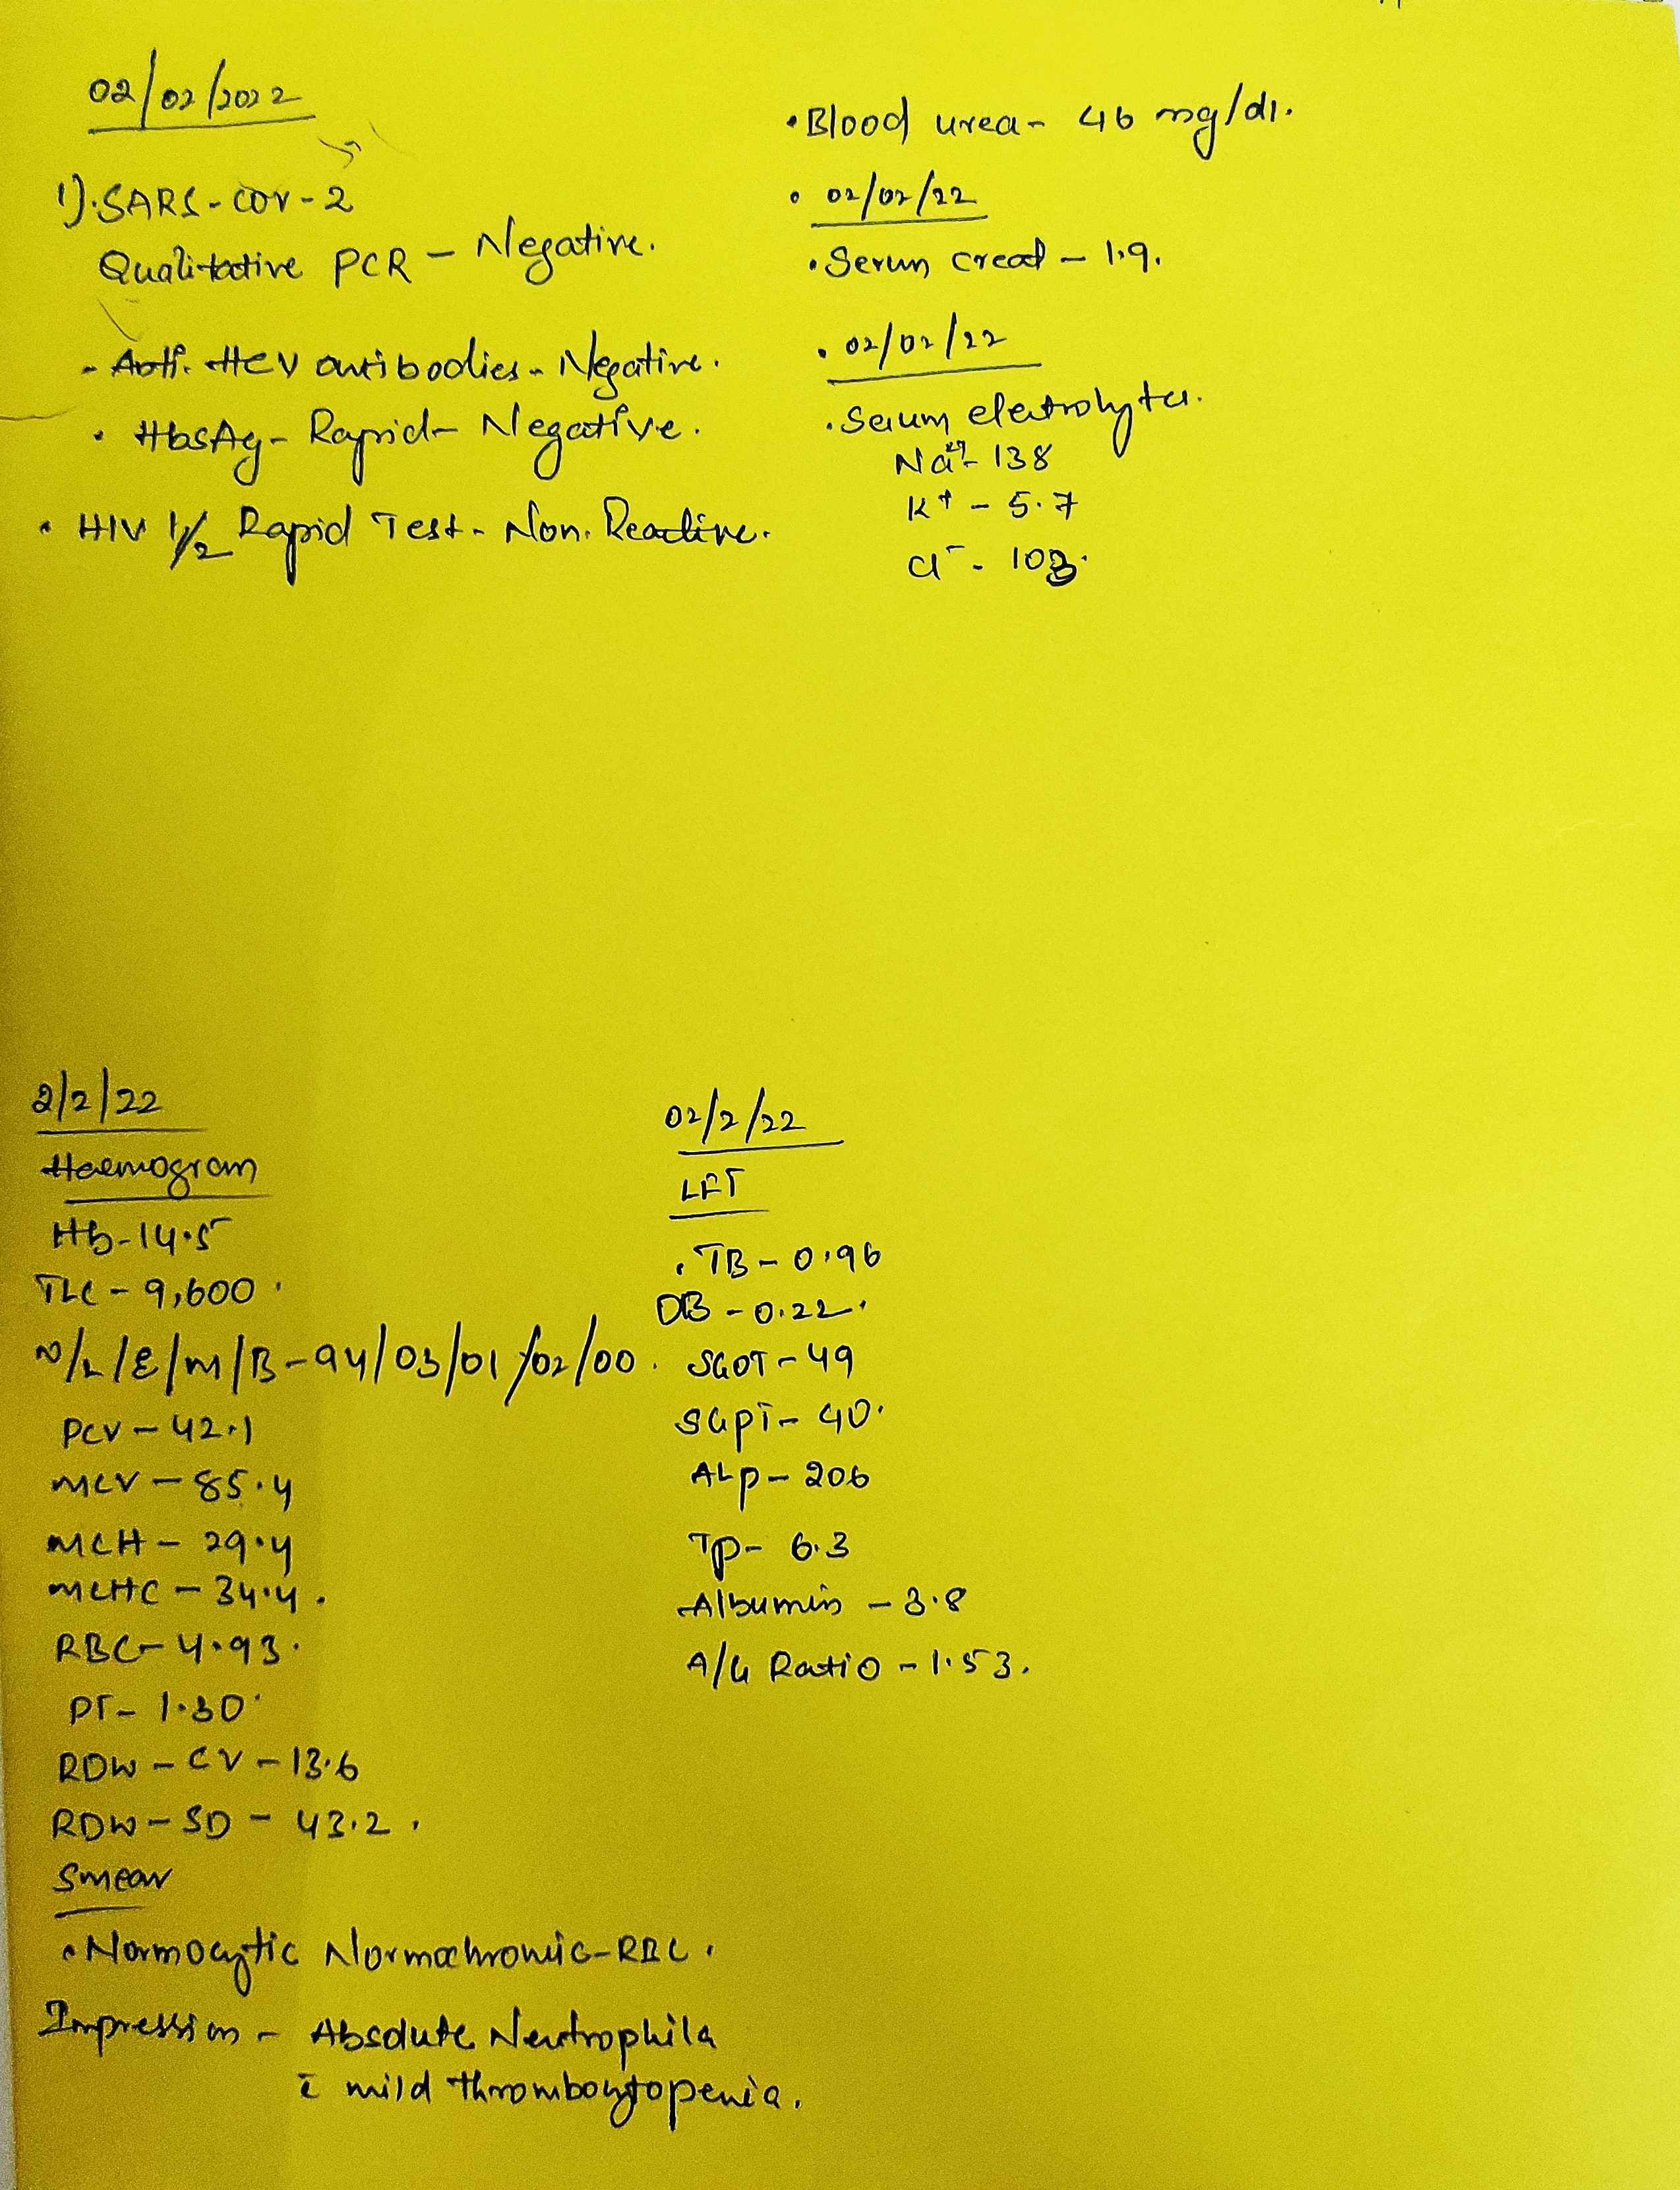 02/02/2022
1). SARS-COV-2
Qualitative PCR - Negative.
- Anti. HCV antibodies - Negative.
• HbsAg - Rapid - Negative.
• HIV 1/2 Rapid Test - Non. Reactive.
• Blood urea - 46 mg/dl.
• 02/02/22
• Serum creat - 1.9.
• 02/02/22
• Serum electrolytes.
Na+ - 138
K+ - 5.7
Cl- - 103.
2/2/22
Haemogram
Hb - 14.5
TLC - 9,600.
N/L/E/M/B - 94/03/01/02/00.
PCV - 42.1
MCV - 85.4
MCH - 29.4
MCHC - 34.4.
RBC - 4.93.
PT - 1.30.
RDW - CV - 13.6
RDW - SD - 43.2.
Smear
• Normocytic Normochromic - RBC.
Impression - Absolute Neutrophila
c̄ mild thrombocytopenia.
02/2/22
LFT
• TB - 0.96
DB - 0.22.
SGOT - 49
SGPT - 40.
ALP - 206
TP - 6.3
Albumin - 3.8
A/G Ratio - 1.53.